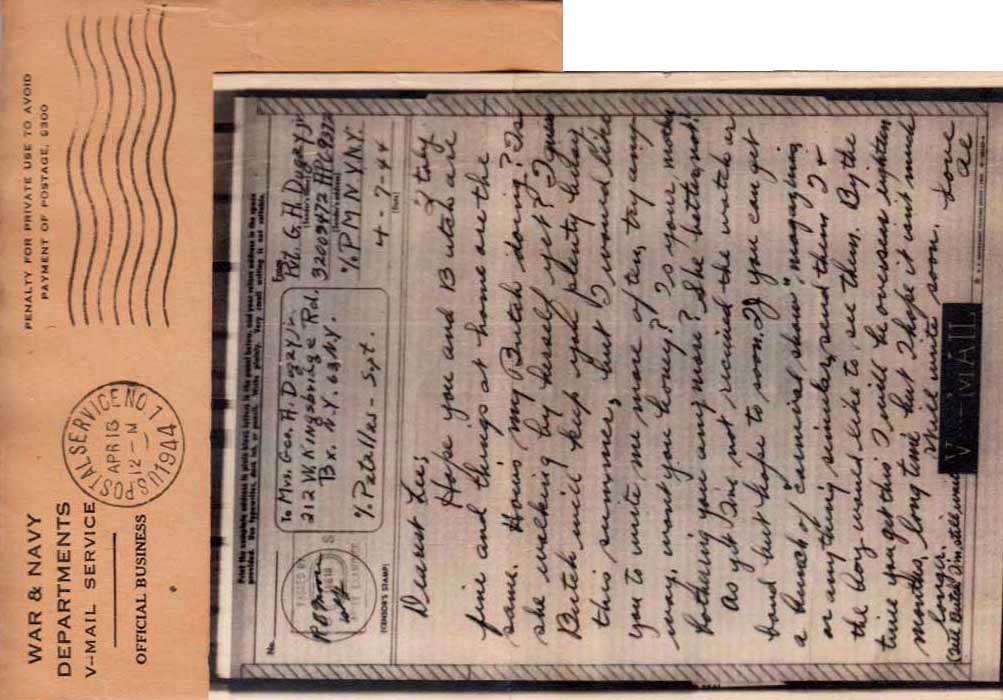 WAR & NAVY
DEPARTMENTS
V-MAIL SERVICE
OFFICIAL BUSINESS
PENALTY FOR PRIVATE USE TO AVOID
PAYMENT OF POSTAGE, $300
U.S. POSTAL SERVICE NO 1
APR 13
12-M
1944
Print the complete address in plain block letters in the panel below, and your return address in the space
provided. Use typewriter, dark ink, or pencil. Write plainly. Very small writing is not suitable.
No.
PASSED BY
(CENSOR'S STAMP)
To Mrs. Geo. A. Dugay Jr.
212 W. Kingsbridge Rd.
Bx. N.Y. 63 N.Y.
% Patallas - Sgt.
From
Pvt. G. A. Dugay Jr
(Sender's name)
32609472
(Sender's address)
% P M N Y N.Y.
4-7-44
(Date)
Dearest Lee;
Hope you and Butch are
fine and things at home are the
same. How is my Butch doing? Is
she walking by herself yet? I guess
Butch will keep you plenty busy
this summer, but I would like
you to write me more often, try any-
way, wont you honey? Is your mother
bothering you any more? She better not!
As yet I've not received the watch or
but hope to soon. If you can get
a bunch of "carnival show" magazines
or anything similar, send them I &
the boy would like to see them. By the
time you get this I will be overseas eighteen
months, long time but I hope it isnt much
longer. Will write soon.
Love
V-MAIL